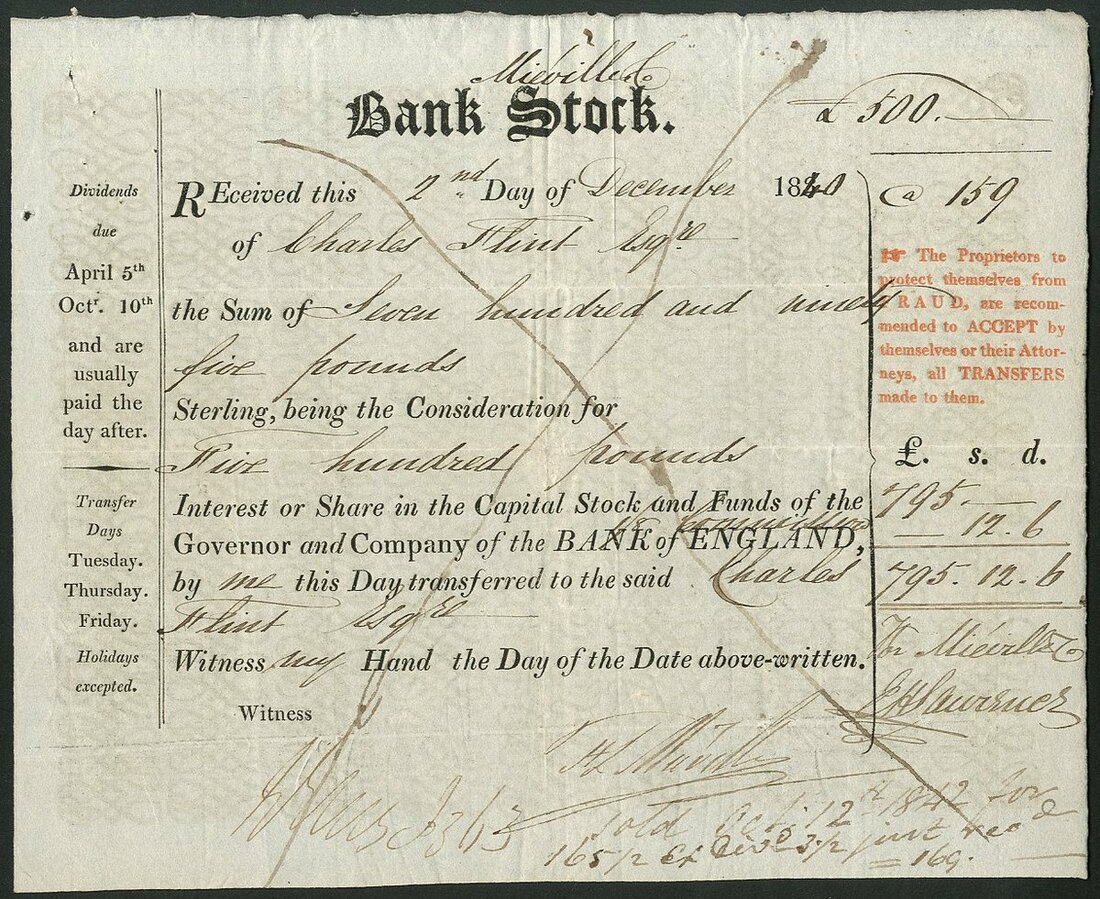 Miéville & Co
Bank Stock.
£ 500.
Dividends
due
April 5th
Octr. 10th
and are
usually
paid the
day after.
Transfer
Days
Tuesday.
Thursday.
Friday.
Holidays
excepted.
REceived this 2nd Day of December 1840
of Charles Flint Esqre
the Sum of Seven hundred and ninety
five pounds
Sterling, being the Consideration for
Five hundred pounds
Interest or Share in the Capital Stock and Funds of the
Governor and Company of the BANK of ENGLAND,
by me this Day transferred to the said Charles
Flint Esqre
Witness my Hand the Day of the Date above-written.
Witness
@ 159
The Proprietors to
protect themselves from
FRAUD, are recom-
mended to ACCEPT by
themselves or their Attor-
neys, all TRANSFERS
made to them.
£. s. d.
795.
Commission 12.6
795.12.6
For Miéville & Co
J H Lawrence
sold Oct. 12th 1842 for
165½ Ex Divd 3½ just recd
= 169.